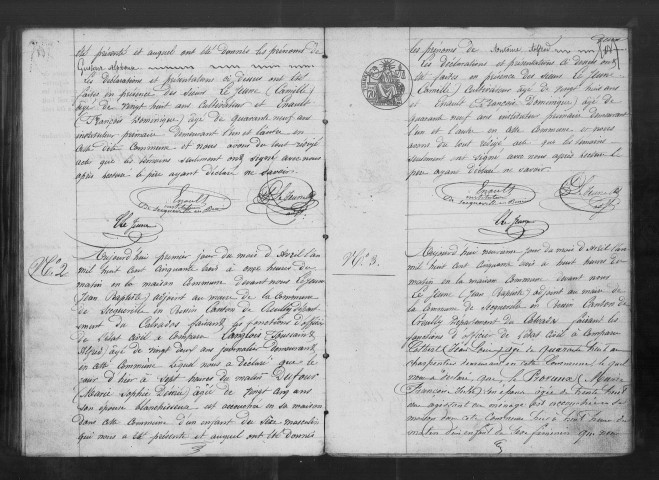 été présenté et auquel ont été donnés les prénoms de
Gustave Alphonse
Les déclarations et présentations ci dessus ont été
faites en présence des Sieurs Le Jeune (Camille)
âgé de vingt huit ans cultivateur et Enault
(François Dominique) âgé de quarante neuf ans
instituteur primaire demeurant l'un et l'autre en
cette dite Commune et nous avons du tout rédigé
acte que les témoins seulement ont signé avec nous
après lecture le père ayant déclaré ne savoir.
Enault
instituteur
de Secqueville en Bessin
C. Le Jeune
Le Jeune
N° 2
Aujourd'hui premier jour du mois d'Avril l'an
mil huit cent cinquante trois à onze heures du
matin en la maison commune devant nous Lejeune
(Jean Baptiste) adjoint au maire de la Commune
de Secqueville en Bessin Canton de Creully départe
ment du Calvados faisant les fonctions d'officier
de l'état civil a comparu Langlois (Toussaint
Alfred) âgé de vingt deux ans journalier demeurant
en cette Commune lequel nous a déclaré que le
jour d'hier à sept heures du matin Dufour
(Marie Sophie) âgée de vingt cinq ans
son épouse blanchisseuse est accouchée en sa maison
dans cette Commune d'un enfant du sexe masculin
qui nous a été présenté et auquel ont été donnés
les prénoms de Toussaint Alfred
Les déclarations et présentations ci dessus ont
été faites en présence des Sieurs Le Jeune
(Camille) cultivateur âgé de vingt huit ans
et Enault (François Dominique) âgé de
quarante neuf ans instituteur primaire demeurant
l'un et l'autre en cette Commune et nous
avons du tout rédigé acte que les témoins
seulement ont signé avec nous après lecture le
père ayant déclaré ne savoir.
Enault
instituteur
de Secqueville en Bessin
C. Le Jeune
Le Jeune
N° 3.
Aujourd'hui neuvième jour du mois d'Avril l'an
mil huit cent cinquante trois à huit heures du
matin en la maison Commune devant nous
Le Jeune (Jean Baptiste) adjoint au maire de
la Commune de Secqueville en Bessin Canton de
Creully Département du Calvados faisant les
fonctions d'officier de l'état civil a comparu
(Jean Louis) âgé de quarante huit ans
charpentier demeurant en cette Commune lequel
nous a déclaré que Le (Marie
Françoise) son épouse âgée de trente huit
ans est accouchée en sa
maison dans cette Commune hier à huit heures du
matin d'un enfant de sexe féminin qui nous